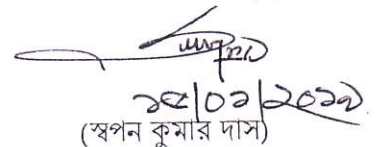 ১৫|০১|২০১৯
(স্বপন কুমার দাস)